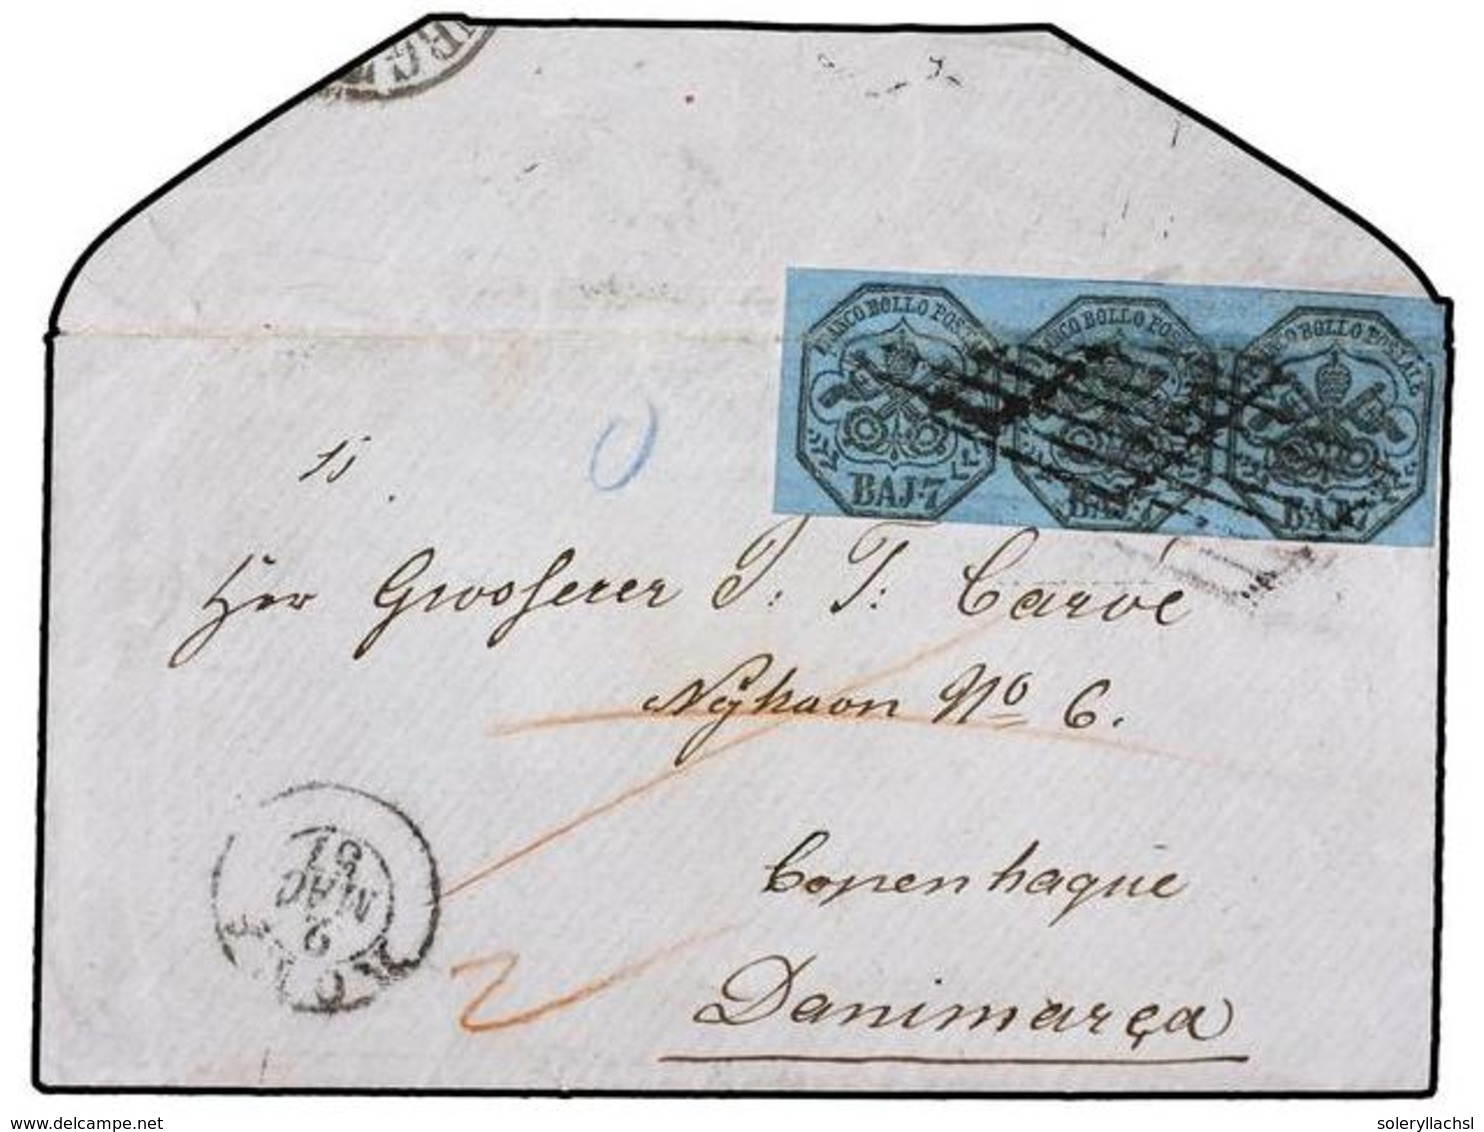 FRANCO BOLLO POSTALE
BAJ. 7
BOLLO POS
BAJ. 7
BOLLO POSTALE
BAJ 7
Herr Grosserer J. T. Carve
Nÿhavn Nº 6.
Copenhague
Danimarça
2
MAG
57
ROMA
2
www.delcampe.net
soleryllachsl